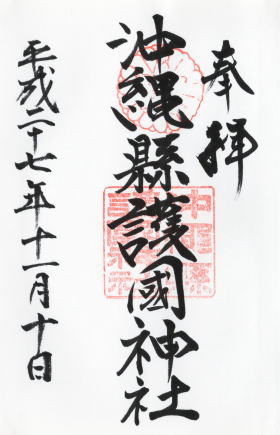 奉拝
沖縄縣護國神社
平成二十七年十一月十日